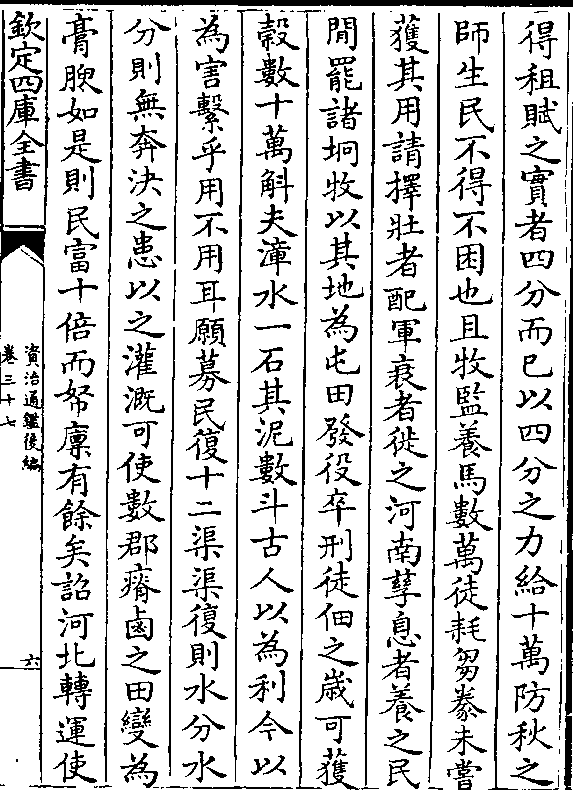 得租賦之實者四分而已以四分之力給十萬防秋之
師生民不得不困也且牧監養馬數萬徒耗芻豢未嘗
獲其用請擇壯者配軍衰者徙之河南孳息者養之民
間罷諸坰牧以其地為屯田發役卒刑徒佃之歳可獲
穀數十萬斛夫漳水一石其泥數斗古人以為利今以
為害繫乎用不用耳願募民復十二渠渠復則水分水
分則無奔決之患以之灌溉可使數郡瘠鹵之田變為
膏腴如是則民富十倍而帑廪有餘矣詔河北轉運使
欽定四庫全書
資治通鑑後編
卷三十七
六